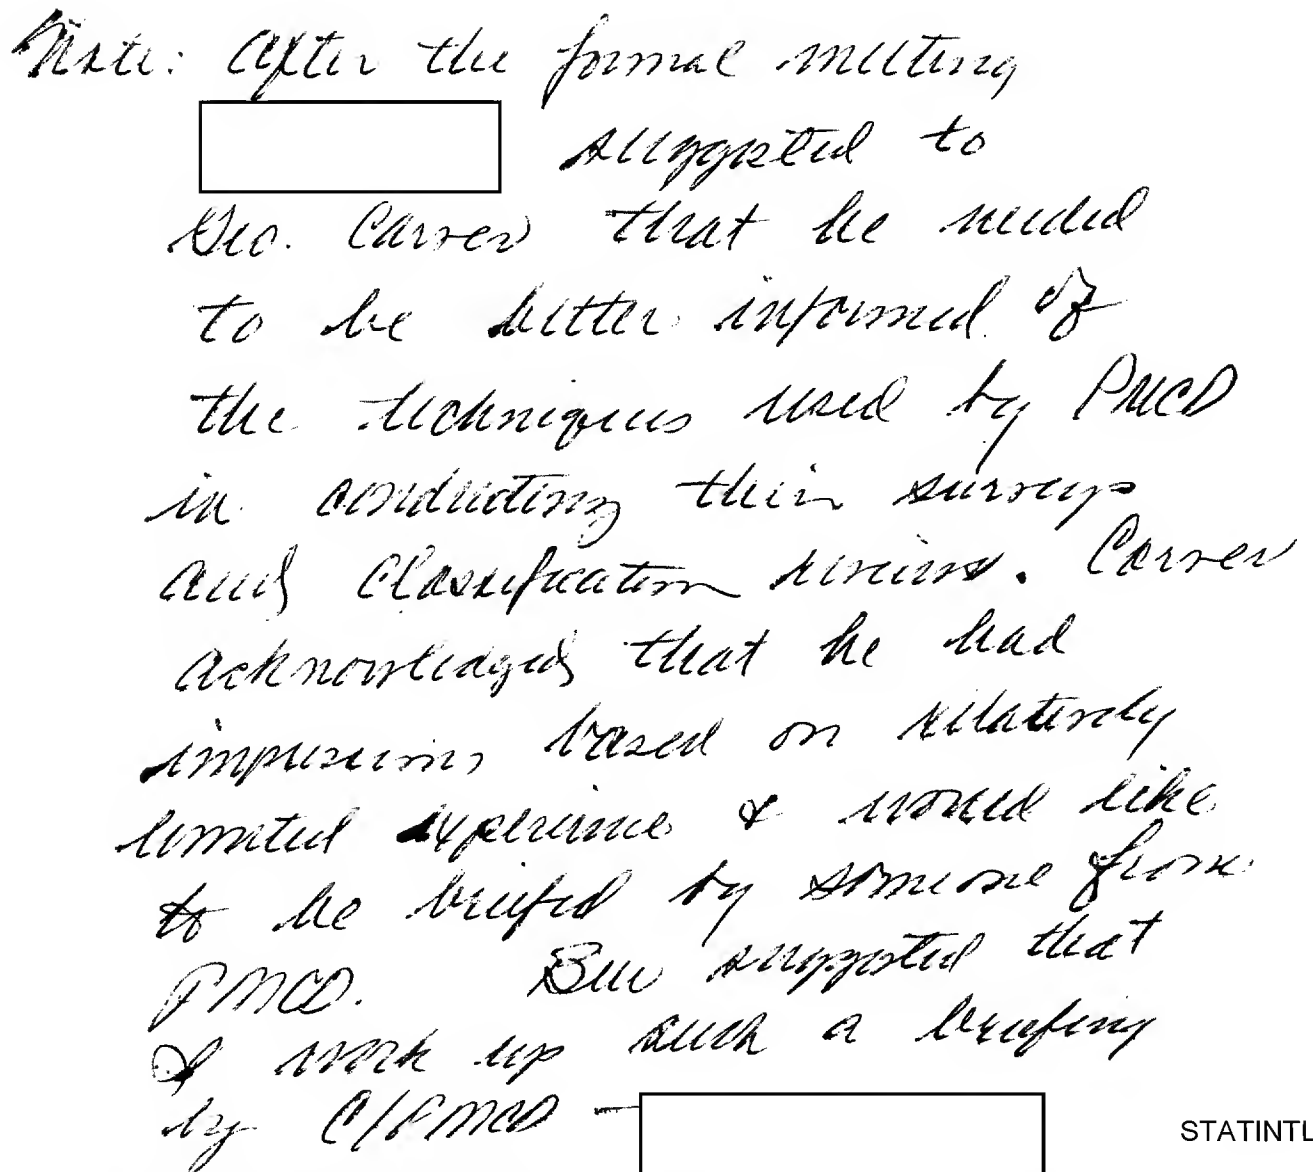 Note: After the formal meeting
suggested to
Geo. Carver that he needed
to be better informed of
the techniques used by PMCD
in conducting their surveys
and classification reviews. Carver
acknowledged that he had
impressions based on relatively
limited experience & would like
to be briefed by someone from
PMCD. suggested that
I work up such a briefing
by C/PMCD -
STATINTL